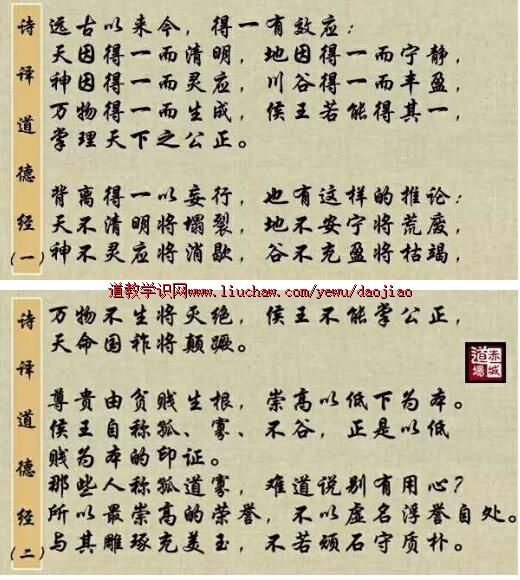 诗译道德经(一)
远古以来今，得一有效应：
天因得一而清明，地因得一而宁静，
神因得一而灵应，川谷得一而丰盈，
万物得一而生成，侯王若能得其一，
掌理天下之公正。
背离得一以妄行，也有这样的推论：
天不清明将塌裂，地不安宁将荒废，
神不灵应将消歇，谷不充盈将枯竭，
道教学识网www.liuchaw.com/yewu/daojiao
诗译道德经(二)
万物不生将灭绝，侯王不能掌公正，
天命国祚将颠蹶。
赤城道場
尊贵由贫贱生根，崇高以低下为本。
侯王自称孤、寡、不谷，正是以低
贱为本的印证。
那些人称孤道寡，难道说别有用心？
所以最崇高的荣誉，不以虚名浮誉自处。
与其雕琢充美玉，不若顽石守质朴。